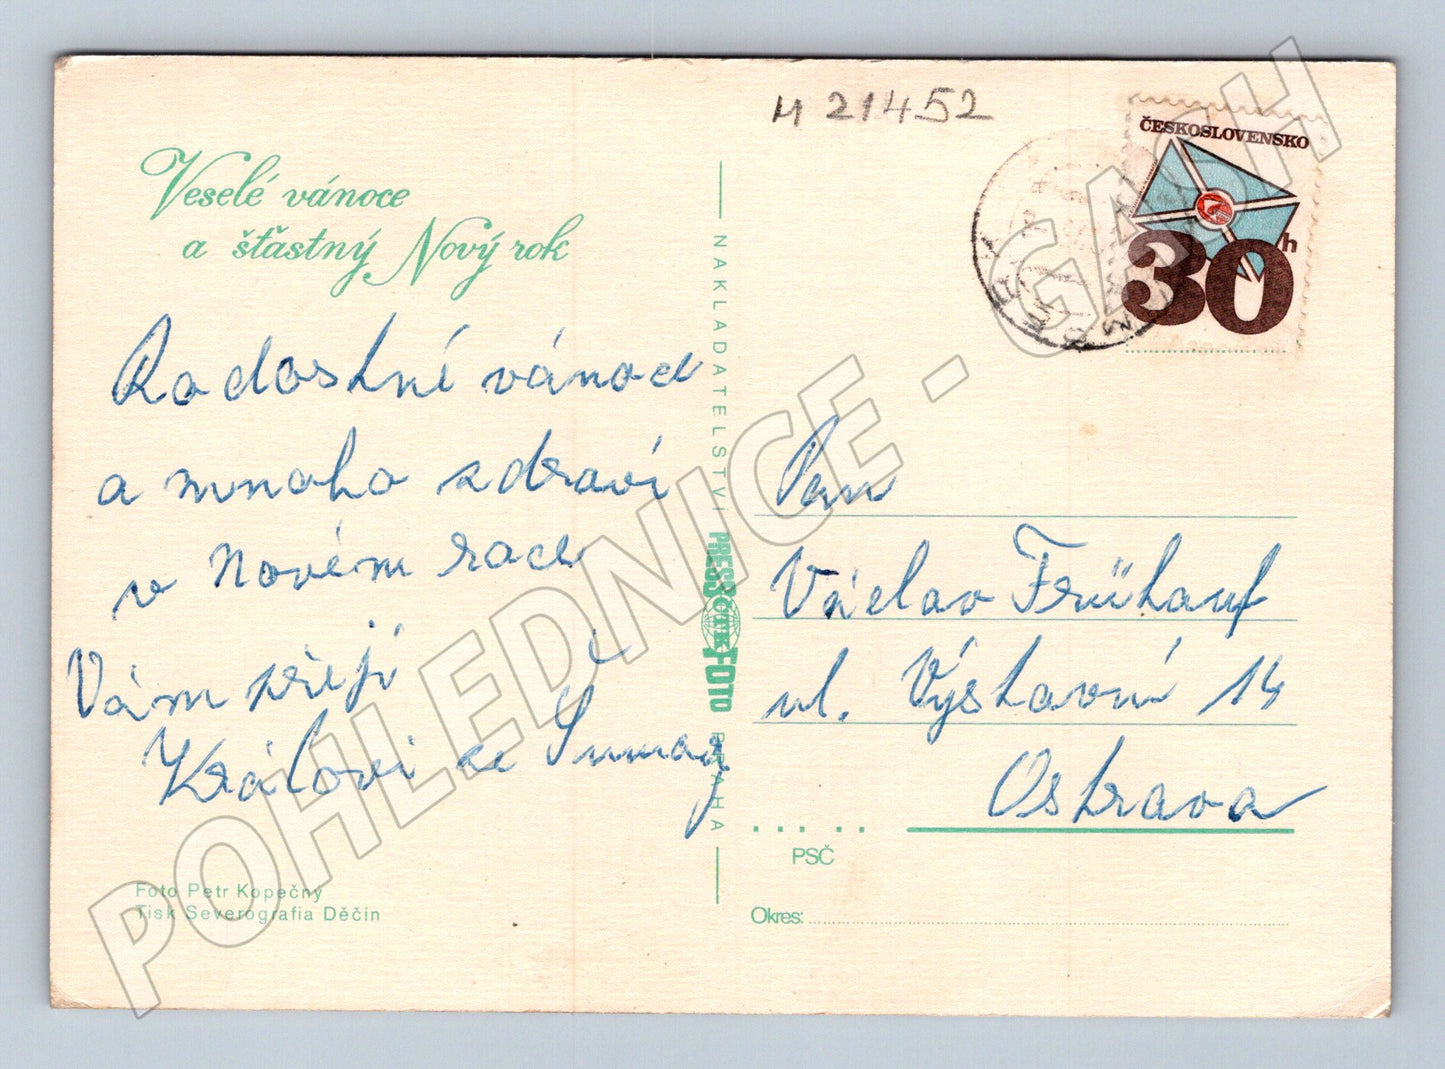 M 21452
ČESKOSLOVENSKO
30h
Veselé vánoce
a šťastný Nový rok
Radostné vánoce
a mnoho zdraví
v Novém roce
Vám přejí
Královi ze Sumag
NAKLADATELSTVÍ PRESSFOTO PRAHA
ČTK
Pan
Václav Frühauf
ul. Výstavní 14
Ostrava
PSČ
Okres:
Foto Petr Kopečný
Tisk Severografia Děčín
POHLEDNICE - GASH